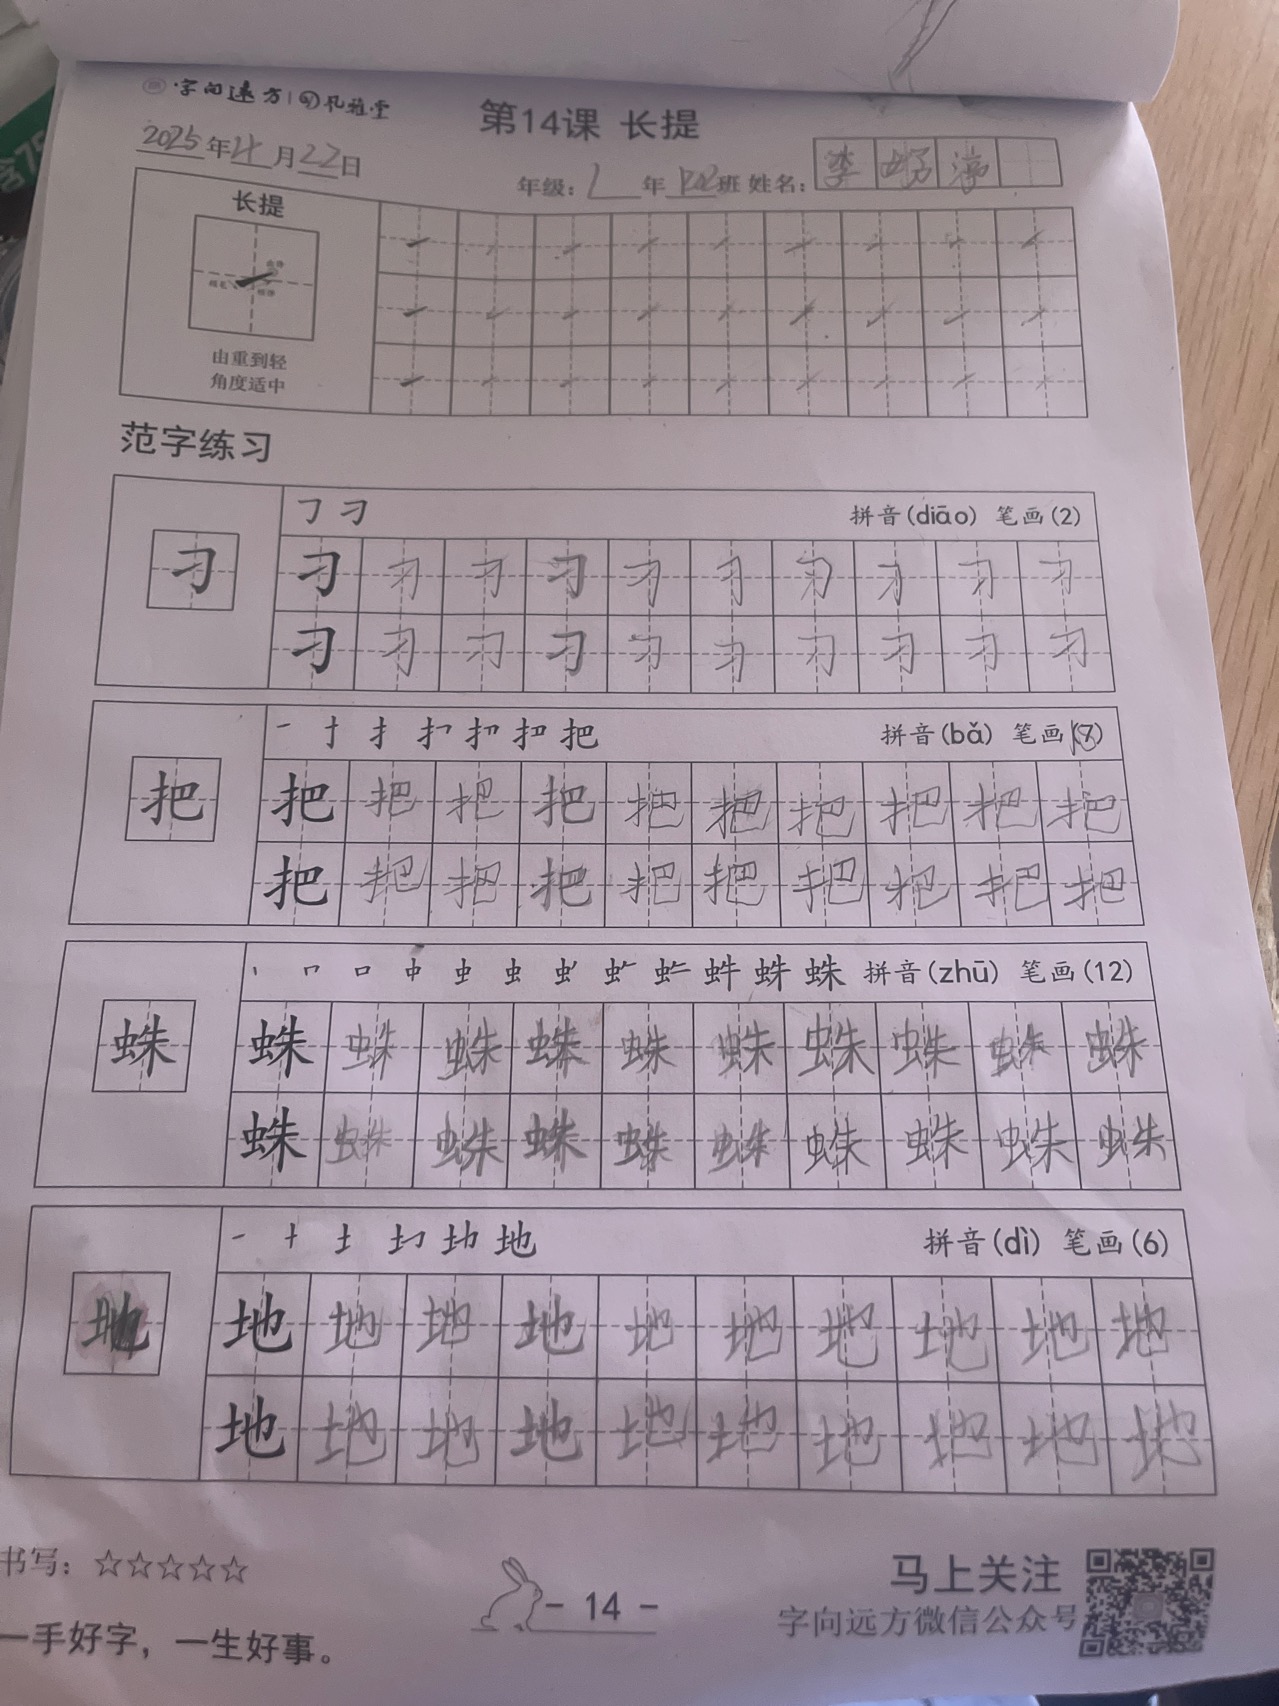 字向远方 | 孔雅堂
第14课 长提
2025年4月22日
年级: 1年 班 姓名: 李 淳
长提
由重到轻
角度适中
范字练习
刁 拼音(diāo) 笔画(2)
刁 刁 刁 刁 刁 刁 刁 刁 刁 刁
刁 刁 刁 刁 刁 刁 刁 刁 刁 刁
把 拼音(bǎ) 笔画(7)
把 把 把 把 把 把 把 把 把 把
把 把 把 把 把 把 把 把 把 把
蛛 拼音(zhū) 笔画(12)
蛛 蛛 蛛 蛛 蛛 蛛 蛛 蛛 蛛 蛛
蛛 蛛 蛛 蛛 蛛 蛛 蛛 蛛 蛛 蛛
地 拼音(dì) 笔画(6)
地 地 地 地 地 地 地 地 地 地
地 地 地 地 地 地 地 地 地 地
书写: ☆☆☆☆☆
一手好字，一生好事。
- 14 -
马上关注
字向远方微信公众号